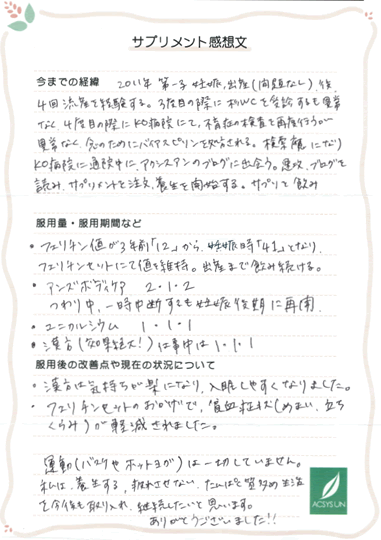 サプリメント感想文
今までの経緯 2011年 第一子妊娠,出産(問題なし)後、
4回流産を経験する。3度目の際に杉WCを受診するも異常
なく、4度目の際にKO病院にて,不育症の検査を再度行うが
異常なく、念のためにバイアスピリンを処方される。
KO病院に通院中に、アクシスアンのブログに出会う。ブログを
読み、サプリメントを注文、養生を開始する。サプリを飲み
服用量・服用期間など
・フェリチン値が3年前「12」から、妊娠時「41」となり、
フェリチンセットにて値を維持。出産まで飲み続ける。
・アンズボディケア 2・1・2
つわり中、一時中断するも妊娠後期に再開
・ユニカルシウム 1・1・1
・漢方(効果絶大!)は 1・1・1
服用後の改善点や現在の状況について
・漢方は気持ちが楽になり、入眠しやすくなりました。
・フェリチンセットのおかげで、貧血症状(めまい、立ち
くらみ)が軽減されました。
運動(バスケやホットヨガ)は一切していません。
私は、養生する、疲れさせない、たんぱく質多め生活
を今後も取り入れ、継続したいと思います。
ありがとうございました!!
ACSYS UN